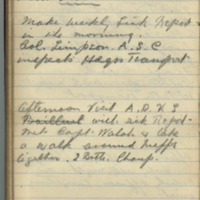 Make weekly Sick Report
in the morning.
Col. Simpson A.S.C
inspects Hdqrs Transport
Afternoon Visit A.D.V.S
with sick Report
Met Capt. Walsh & take
a walk around
together. 2 Bott. Champ.